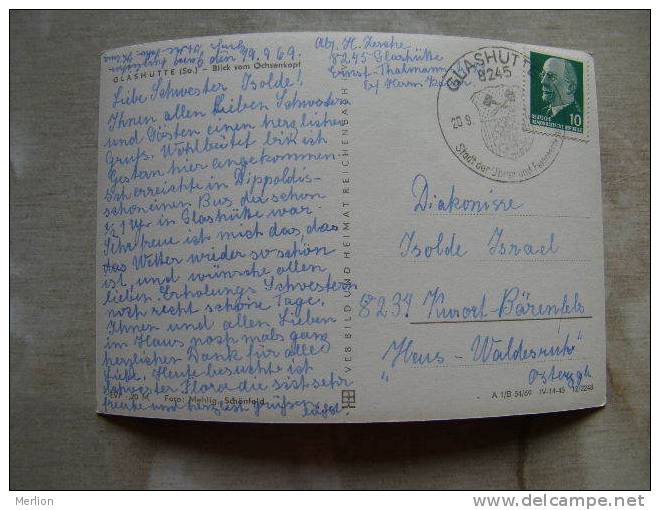 den 19.9.69.
GLASHÜTTE (Sa.) – Blick vom Ochsenkopf
Liebe Schwester Isolde!
Ihnen allen lieben Schwestern
und Gästen einen herzlichen
Gruß. Wohlbeütet bin ich
gestan hier angekommen.
Ich erreichte in Dippoldis-
schon einen Bus der schon
½ 1 Uhr in Glashütte war
Sehr freue ich mich das, das
das Wetter wieder so schön
ist und wünsche allen
lieben Erholungs Schwestern
noch recht schöne Tage.
Ihnen und allen Lieben
in Haus noch mals ganz
herzlichen Dank für alle
Liebe. Heute besuchte ich
Schwester Flora die sich sehr
freute und herzlich grüßen
läßt
EVP –,20 M Foto: Mehlig, Schönfeld
VEB BILD UND HEIMAT REICHENBACH
Abs. H. Zesche
8245 Glashütte
Ernst-Thälmann
b/ Herrn
GLASHÜTTE
8245
20.9
Stadt der Uhren und
DEUTSCHE DEMOKRATISCHE REPUBLIK
10
Diakonisse
Isolde Israel
8234 Kurort Bärenfels
"Haus-Waldesruh"
Osterzgb
A 1/B 54/69 IV-14-45 12/2243
Merlion
www.delcampe.net